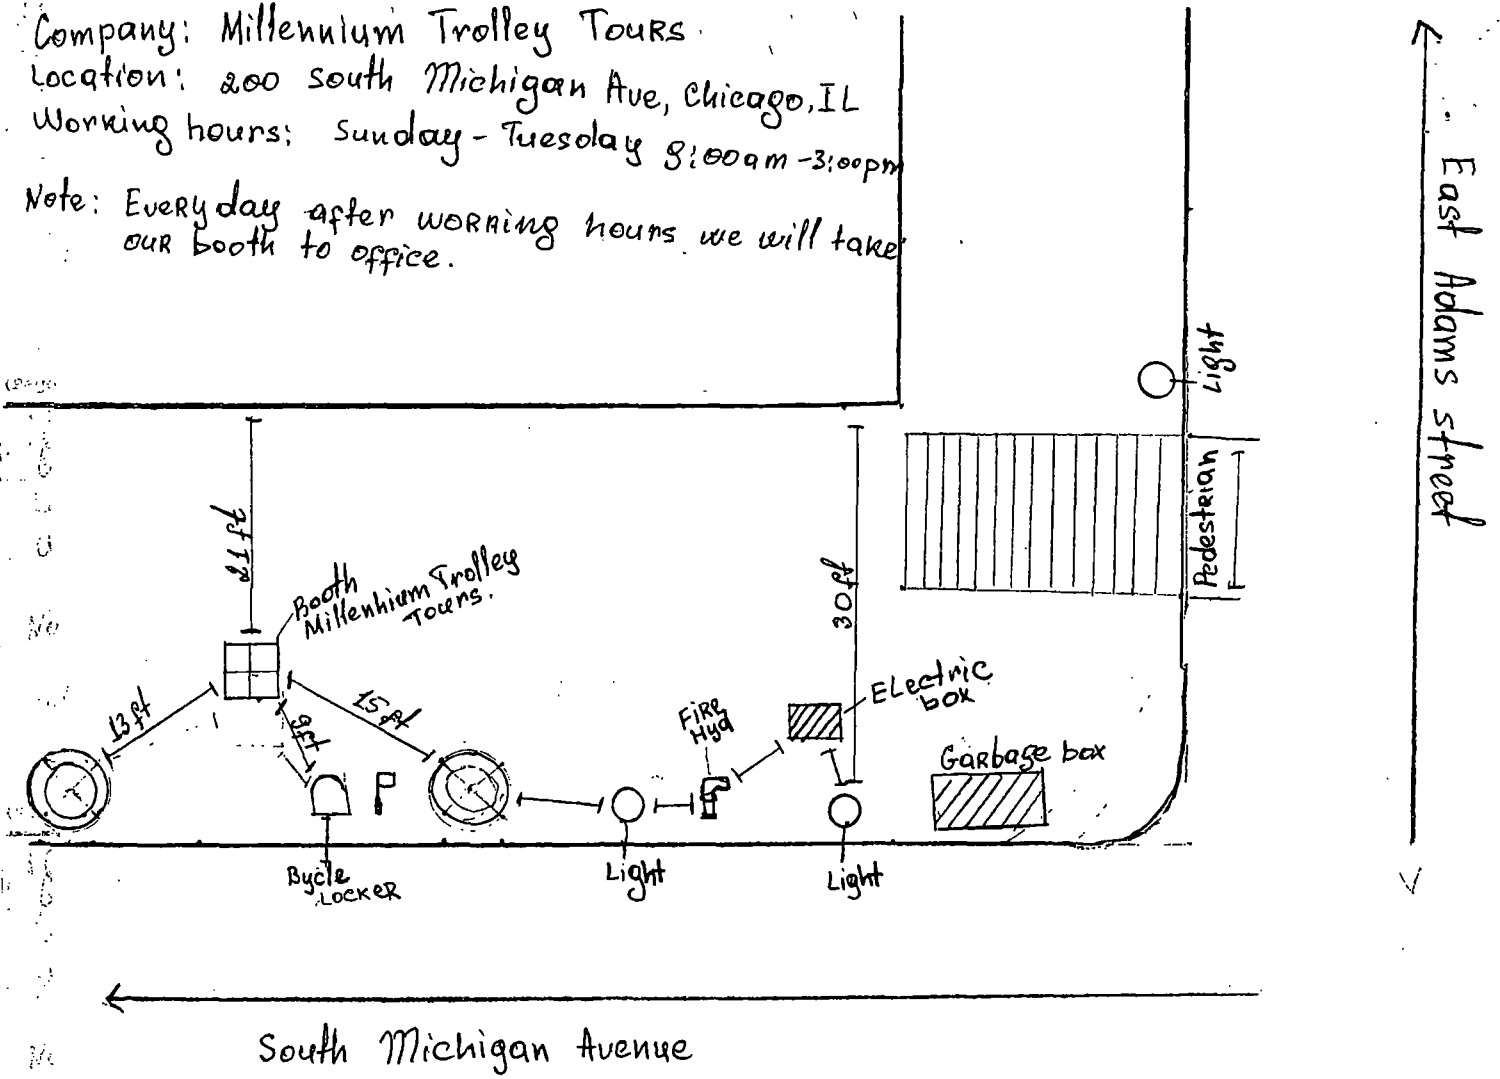 Company: Millennium Trolley Tours
Location: 200 South Michigan Ave, Chicago, IL
Working hours: Sunday - Tuesday 9:00am - 3:00pm
Note: Everyday after working hours we will take
our booth to office.
East Adams street
Light
Pedestrian
21ft
Booth
Millenhium Trolley
Tours.
30ft
Electric
box
13ft
15ft
9ft
Fire
Hyd
Garbage box
Bycle
Locker
Light
Light
South Michigan Avenue